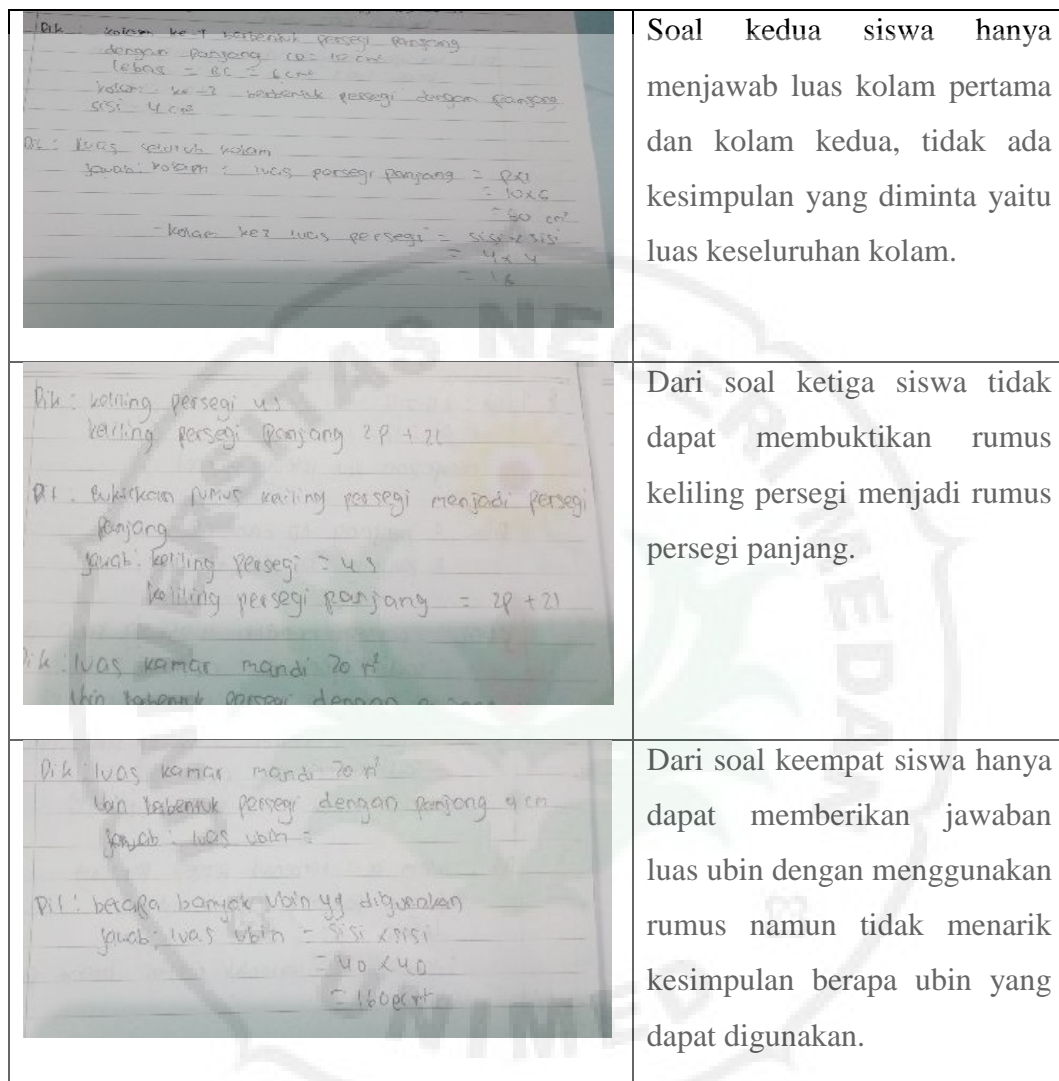 Dik : kolam ke-1 berbentuk persegi panjang
dengan panjang CD = 10 cm²
lebar = BC = 6 cm²
kolam ke-2 berbentuk persegi dengan panjang
sisi 4 cm²
Dit : luas seluruh kolam
Jawab: kolam : luas persegi panjang = pxl
= 10x6
= 60 cm²
- kolam ke2 luas persegi = sisi x sisi
= 4 x 4
= 16
Soal kedua siswa hanya
menjawab luas kolam pertama
dan kolam kedua, tidak ada
kesimpulan yang diminta yaitu
luas keseluruhan kolam.
Dik : keliling persegi 4s
keliling persegi panjang 2p + 2l
Dit : Buktikan rumus keliling persegi menjadi persegi
panjang
Jawab: keliling persegi = 4s
keliling persegi panjang = 2p + 2l
Dik : luas kamar mandi 20 m²
Ubin berbentuk persegi dengan
Dari soal ketiga siswa tidak
dapat membuktikan rumus
keliling persegi menjadi rumus
persegi panjang.
Dik : luas kamar mandi 20 m²
Ubin berbentuk persegi dengan panjang 4 cm
Jawab : luas ubin =
Dit : berapa banyak ubin yg digunakan
Jawab: luas ubin = sisi x sisi
= 40 x 40
Dari soal keempat siswa hanya
dapat memberikan jawaban
luas ubin dengan menggunakan
rumus namun tidak menarik
kesimpulan berapa ubin yang
dapat digunakan.
UNIVERSITAS NEGERI MEDAN
UNIMED